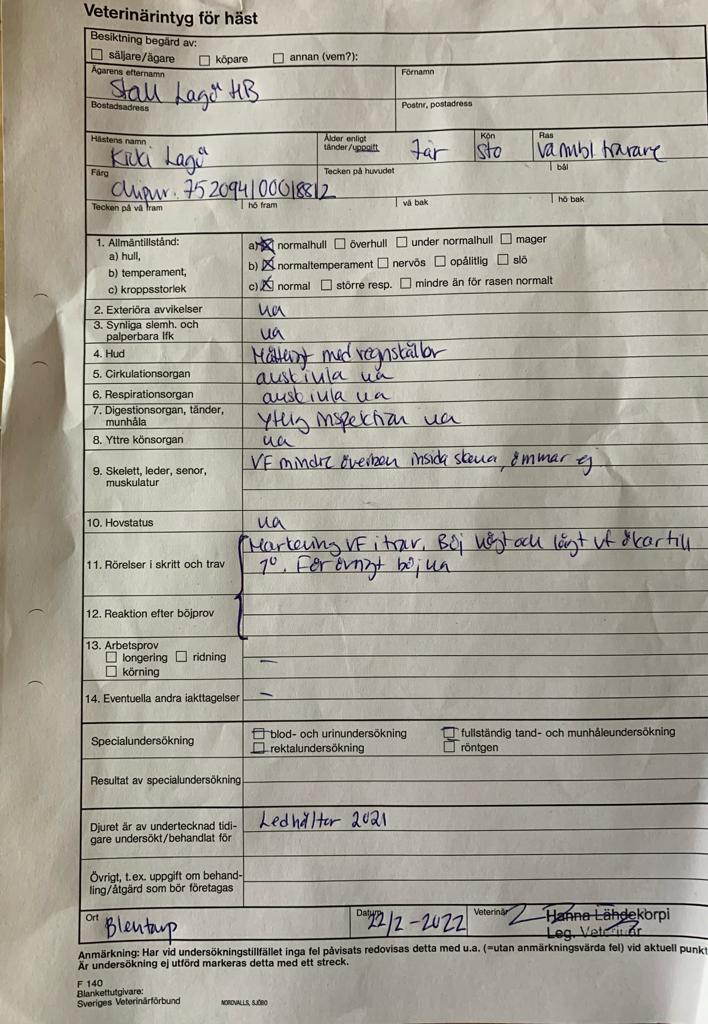 Veterinärintyg för häst
Besiktning begärd av:
säljare/ägare köpare annan (vem?):
Ägarens efternamn Förnamn
Stall Lagå HB
Bostadsadress Postnr, postadress
Hästens namn Ålder enligt tänder/uppgift Kön Ras
Kiki Lagå 7år sto varmbl. travare
Färg Tecken på huvudet bål
chipnr. 752094100018812
Tecken på vä fram hö fram vä bak hö bak
1. Allmäntillstånd: a) normalhull överhull under normalhull mager
a) hull,
b) temperament, b) normaltemperament nervös opålitlig slö
c) kroppsstorlek c) normal större resp. mindre än för rasen normalt
2. Exteriöra avvikelser ua
3. Synliga slemh. och
palperbara lfk ua
4. Hud Måttligt med regnskållor
5. Cirkulationsorgan auskulta ua
6. Respirationsorgan auskulta ua
7. Digestionsorgan, tänder,
munhåla ytlig inspektion ua
8. Yttre könsorgan ua
9. Skelett, leder, senor, VF mindre överben insida skena, ömmar ej
muskulatur
10. Hovstatus ua
11. Rörelser i skritt och trav Markering VF i trav. Böj högt och lågt vf ökar till
1°. För övrigt böj ua
12. Reaktion efter böjprov
13. Arbetsprov
longering ridning –
körning
14. Eventuella andra iakttagelser –
Specialundersökning blod- och urinundersökning fullständig tand- och munhåleundersökning
rektalundersökning röntgen
Resultat av specialundersökning
Djuret är av undertecknad tidi- Ledhältor 2021
gare undersökt/behandlat för
Övrigt, t.ex. uppgift om behand-
ling/åtgärd som bör företagas
Ort Datum Veterinär
Blentarp 22/2-2022 Hanna Lähdekorpi
Leg. Veterinär
Anmärkning: Har vid undersökningstillfället inga fel påvisats redovisas detta med u.a. (=utan anmärkningsvärda fel) vid aktuell punkt
Är undersökning ej utförd markeras detta med ett streck.
F 140
Blankettutgivare:
Sveriges Veterinärförbund NORDVALLS, SJÖBO